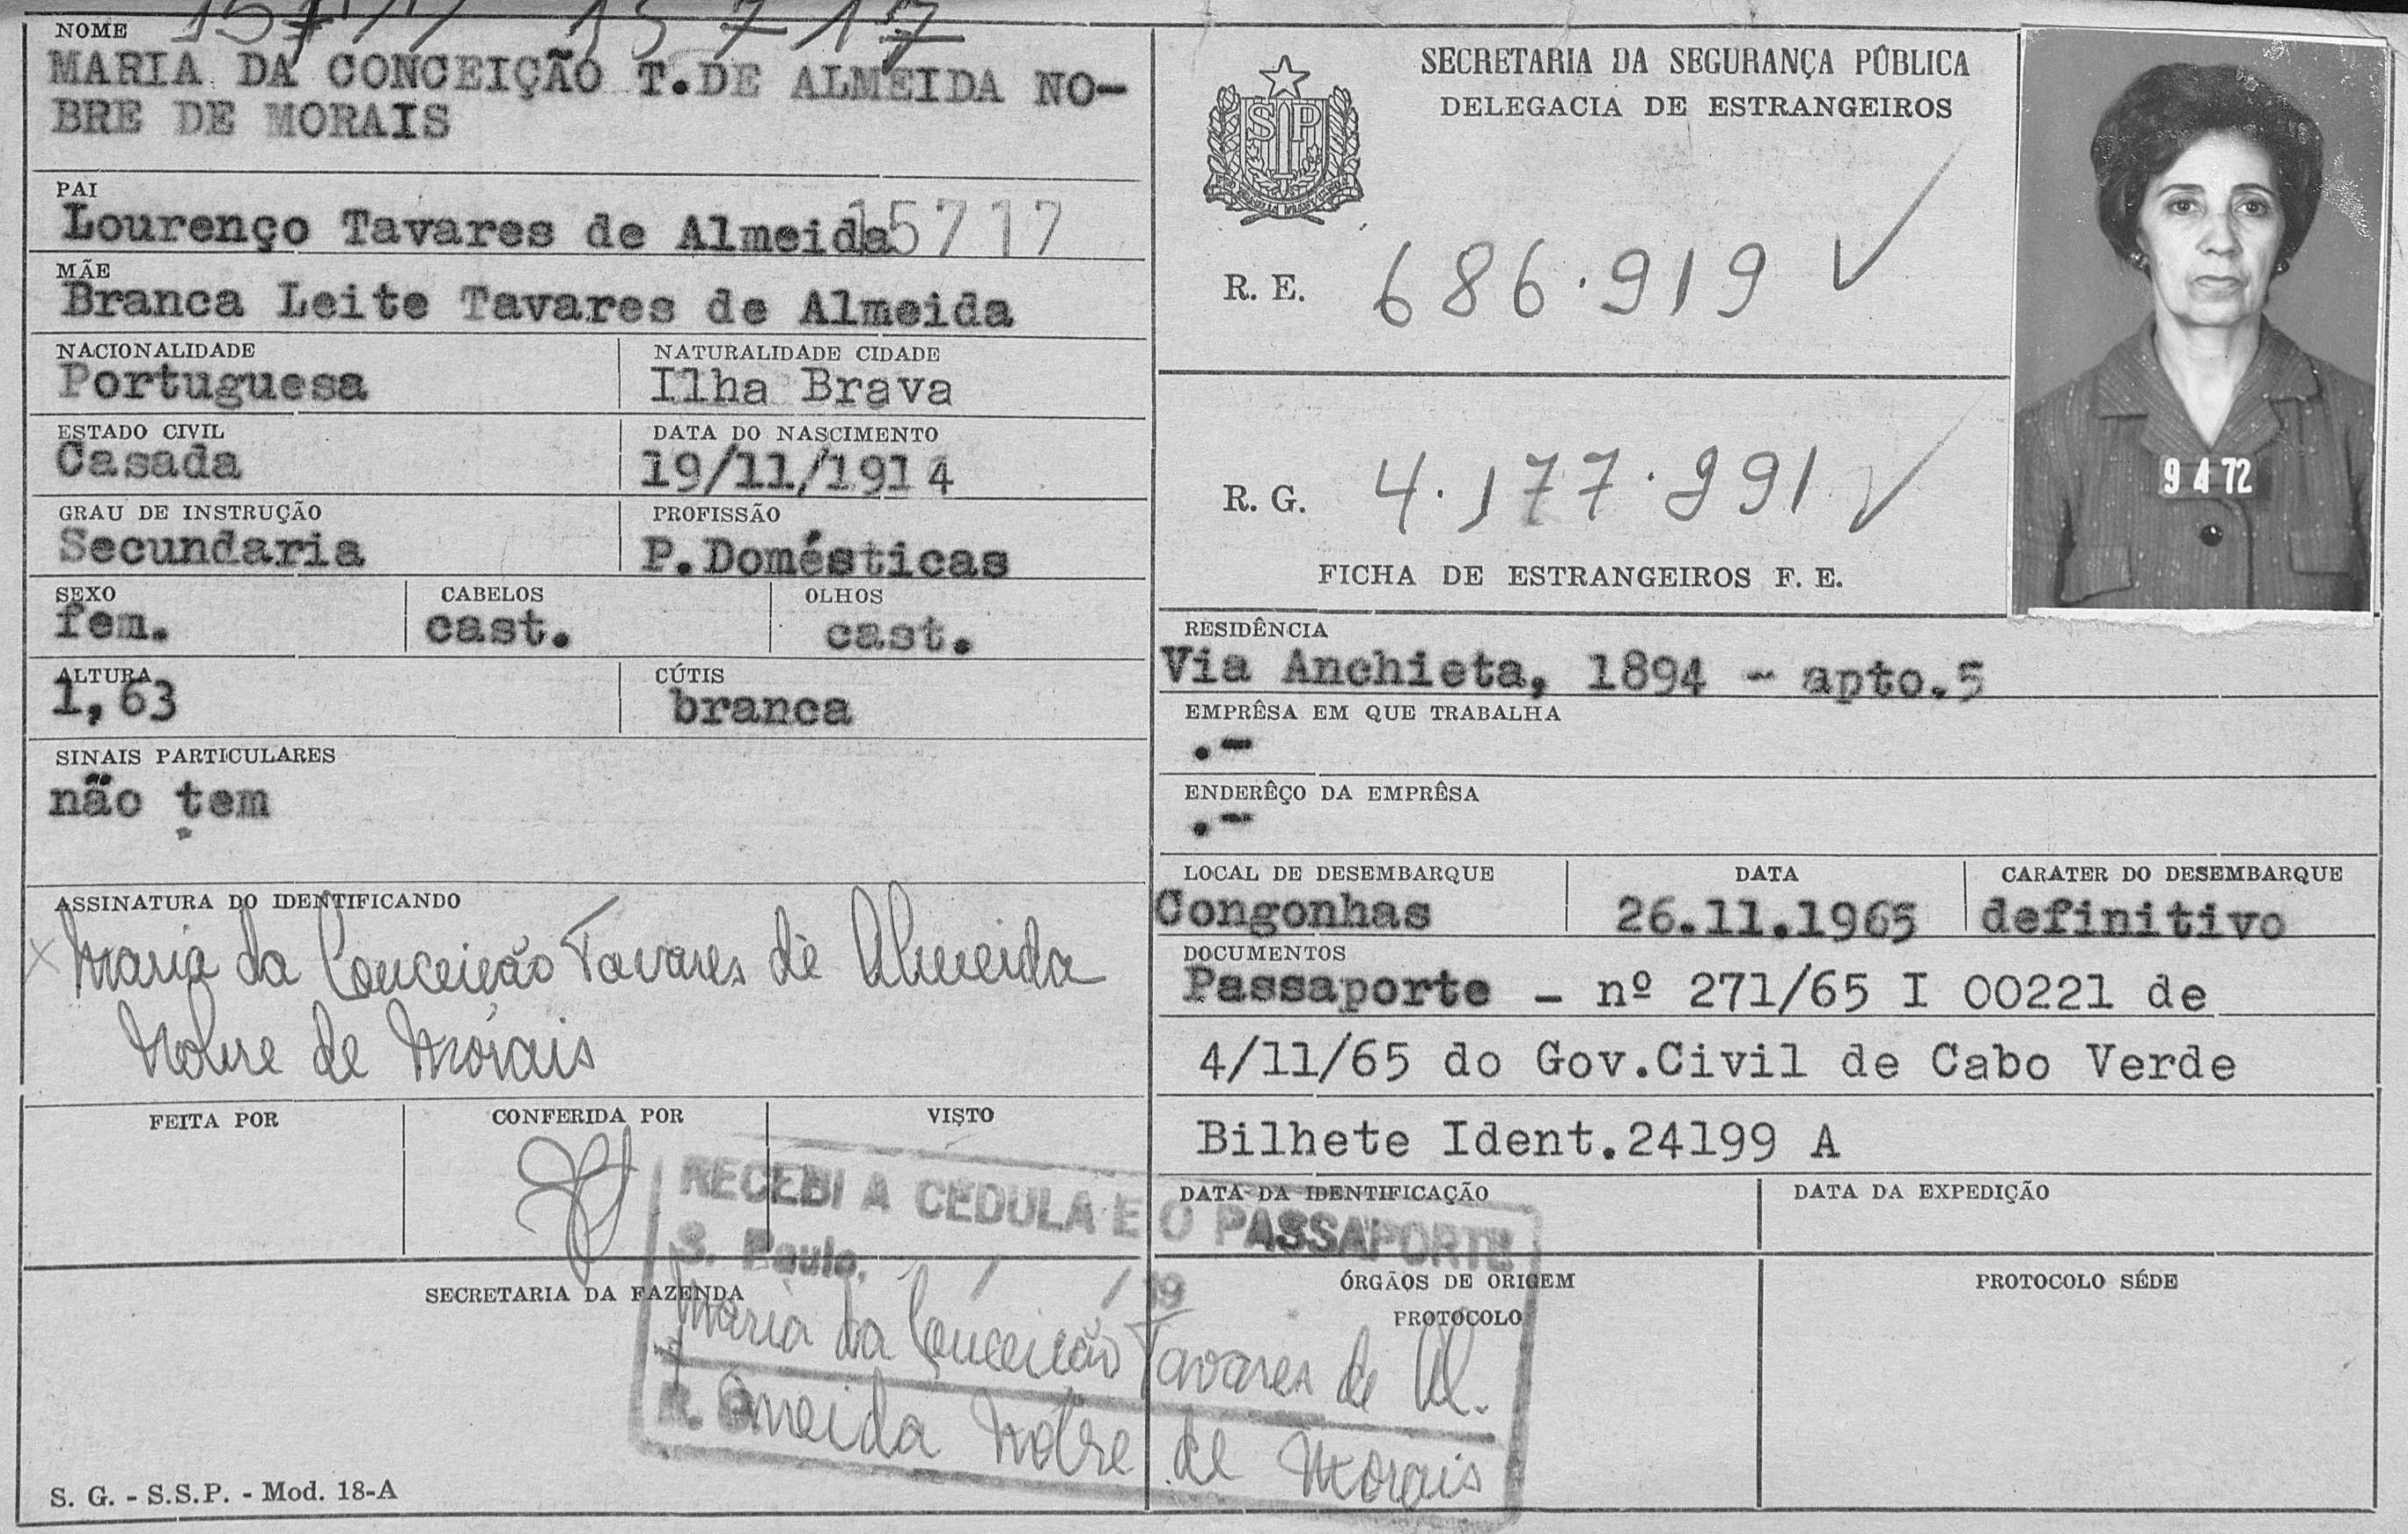 15717 15717
NOME
MARIA DA CONCEIÇÃO T.DE ALMEIDA NO-
BRE DE MORAIS
PAI
Lourenço Tavares de Almeida 15717
MÃE
Branca Leite Tavares de Almeida
NACIONALIDADE
Portuguesa
NATURALIDADE CIDADE
Ilha Brava
ESTADO CIVIL
Casada
DATA DO NASCIMENTO
19/11/1914
GRAU DE INSTRUÇÃO
Secundaria
PROFISSÃO
P.Domésticas
SEXO
fem.
CABELOS
cast.
OLHOS
cast.
ALTURA
1,63
CÚTIS
branca
SINAIS PARTICULARES
não tem
ASSINATURA DO IDENTIFICANDO
x Maria da Conceição Tavares de Almeida
Nobre de Morais
FEITA POR
CONFERIDA POR
VISTO
SECRETARIA DA FAZENDA
S. G. - S.S.P. - Mod. 18-A
SECRETARIA DA SEGURANÇA PÚBLICA
DELEGACIA DE ESTRANGEIROS
SP
R. E. 686.919
R. G. 4.177.991
FICHA DE ESTRANGEIROS F. E.
9 4 72
RESIDÊNCIA
Via Anchieta, 1894 - apto.5
EMPRÊSA EM QUE TRABALHA
.-
ENDERÊÇO DA EMPRÊSA
.-
LOCAL DE DESEMBARQUE
Congonhas
DATA
26.11.1965
CARATER DO DESEMBARQUE
definitivo
DOCUMENTOS
Passaporte - nº 271/65 I 00221 de
4/11/65 do Gov.Civil de Cabo Verde
Bilhete Ident.24199 A
DATA DA IDENTIFICAÇÃO
DATA DA EXPEDIÇÃO
ÓRGÃOS DE ORIGEM
PROTOCOLO
PROTOCOLO SÉDE
RECEBI A CEDULA E O PASSAPORTE
S. Paulo, / /19
Maria da Conceição Tavares de Al.
R. G. meida Nobre de Morais